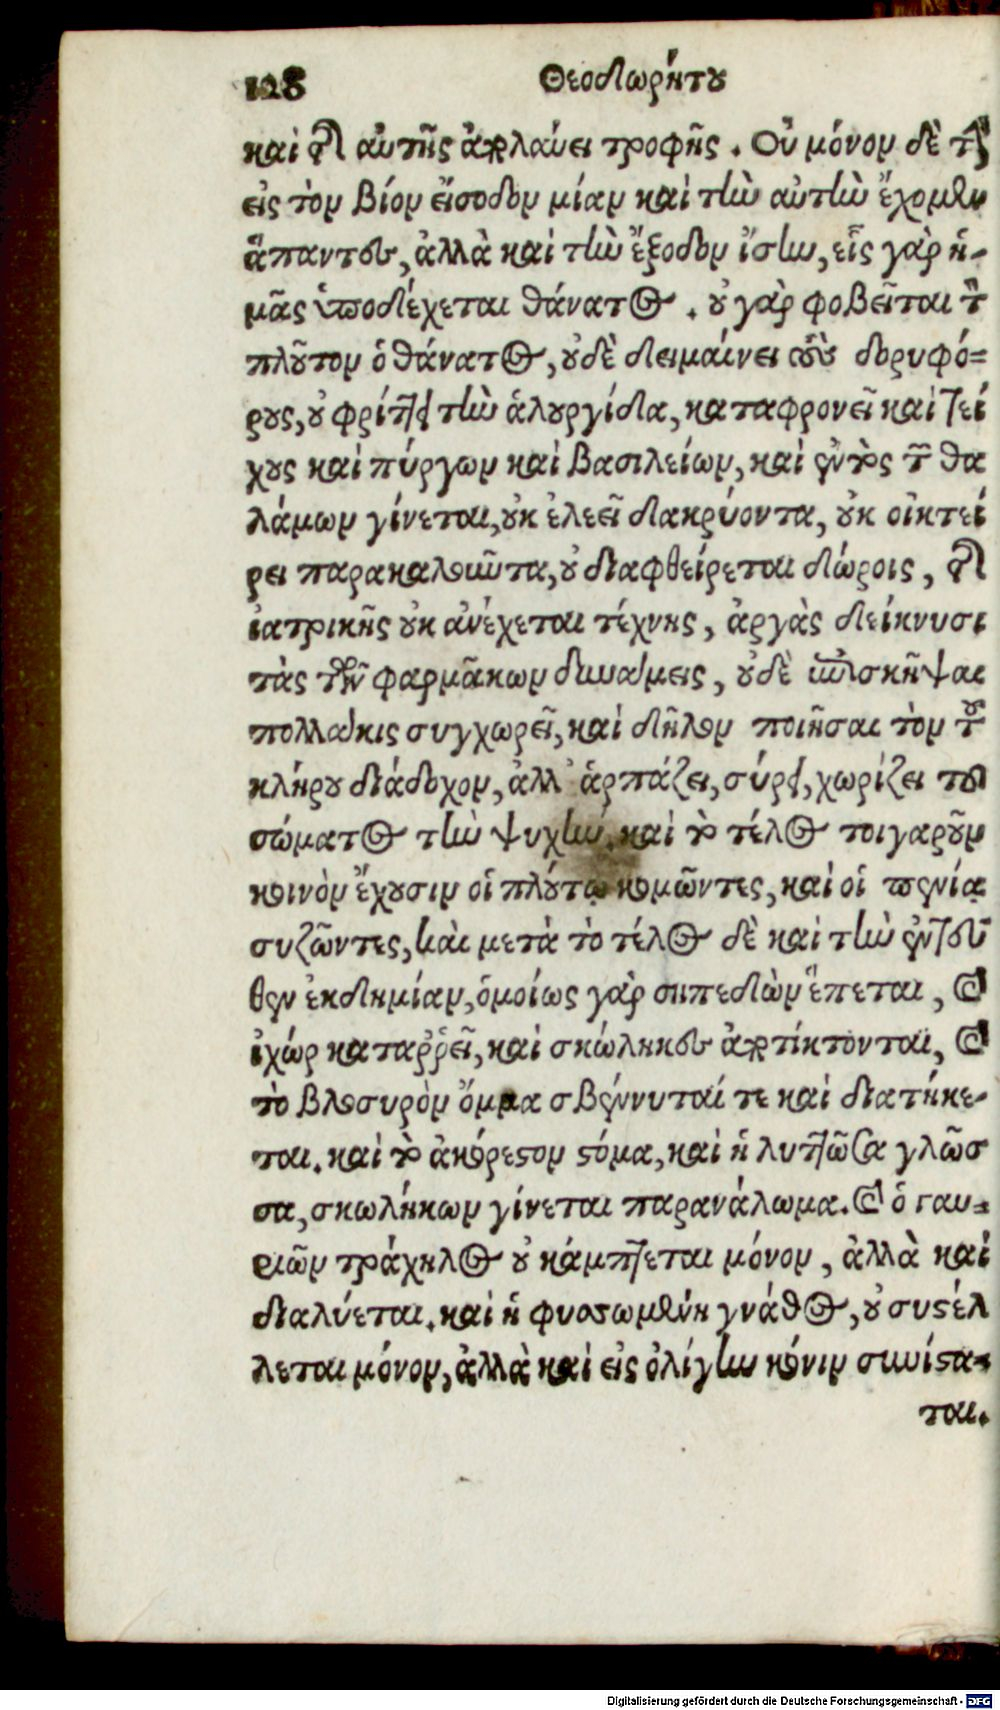 128 Θεοδωρήτου
καὶ τῆς αὐτῆς ἀπολαύει τροφῆς. Οὐ μόνον δὲ τὴν
εἰς τὸν βίον εἴσοδον μίαν καὶ τὴν αὐτὴν ἔχομεν
ἅπαντες, ἀλλὰ καὶ τὴν ἔξοδον ἴσην, εἷς γὰρ ἡ-
μᾶς ὑποδέχεται θάνατος. οὐ γὰρ φοβεῖται τὸν
πλοῦτον ὁ θάνατος, οὐδὲ δειμαίνει τοὺς δορυφό=
ρους, οὐ φρίττει τὴν ἁλουργίδα, καταφρονεῖ καὶ τεί
χους καὶ πύργων καὶ βασιλείων, καὶ ἐντὸς τῶν θα
λάμων γίνεται, οὐκ ἐλεεῖ δακρύοντα, οὐκ οἰκτεί
ρει παρακαλοῦντα, οὐ διαφθείρεται δώροις, τῆς
ἰατρικῆς οὐκ ἀνέχεται τέχνης, ἀργὰς δείκνυσι
τὰς τῶν φαρμάκων δυνάμεις, οὐδὲ ἐπισκῆψαι
πολλάκις συγχωρεῖ, καὶ δῆλον ποιῆσαι τὸν τοῦ
κλήρου διάδοχον, ἀλλ' ἁρπάζει, σύρει, χωρίζει τοῦ
σώματος τὴν ψυχήν. καὶ τὸ τέλος τοιγαροῦν
κοινὸν ἔχουσιν οἱ πλούτῳ κομῶντες, καὶ οἱ πενίᾳ
συζῶντες, καὶ μετὰ τὸ τέλος δὲ καὶ τὴν ἐντεῦ
θεν ἐκδημίαν, ὁμοίως γὰρ σηπεδὼν ἕπεται, καὶ
ἰχώρ καταῤῥεῖ, καὶ σκώληκες ἀποτίκτονται, καὶ
τὸ βλοσυρὸν ὄμμα σβέννυταί τε καὶ διατήκε-
ται. καὶ τὸ ἀκόρεστον στόμα, καὶ ἡ λυττῶσα γλῶσ
σα, σκωλήκων γίνεται παρανάλωμα. καὶ ὁ γαυ=
ριῶν τράχηλος οὐ κάμπτεται μόνον, ἀλλὰ καὶ
διαλύεται. καὶ ἡ φυσωμένη γνάθος, οὐ συστέλ
λεται μόνον, ἀλλὰ καὶ εἰς ὀλίγην κόνιν συνίστα-
ται.
Digitalisierung gefördert durch die Deutsche Forschungsgemeinschaft - DFG